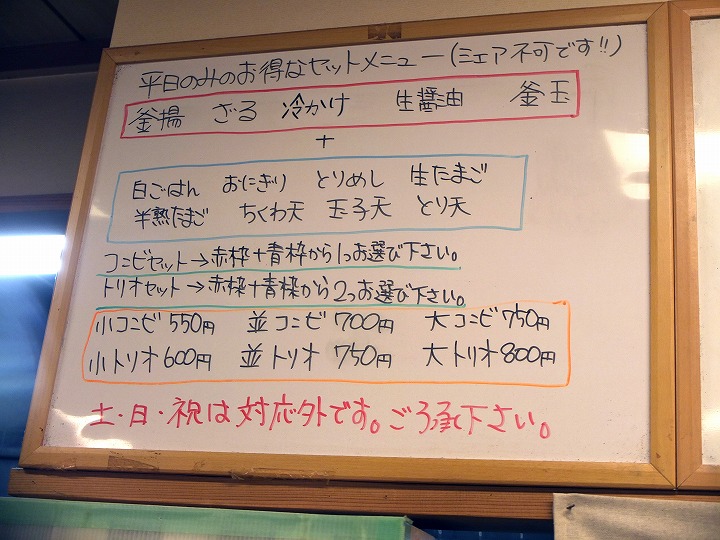 平日のみのお得なセットメニュー(シェア不可です!!)
釜揚 ざる 冷かけ 生醤油 釜玉
+
白ごはん おにぎり とりめし 生たまご
半熟たまご ちくわ天 玉子天 とり天
コンビセット→赤枠+青枠から1つお選び下さい。
トリオセット→赤枠+青枠から2つお選び下さい。
小コンビ550円 並コンビ700円 大コンビ750円
小トリオ600円 並トリオ750円 大トリオ800円
土・日・祝は対応外です。ご了承下さい。